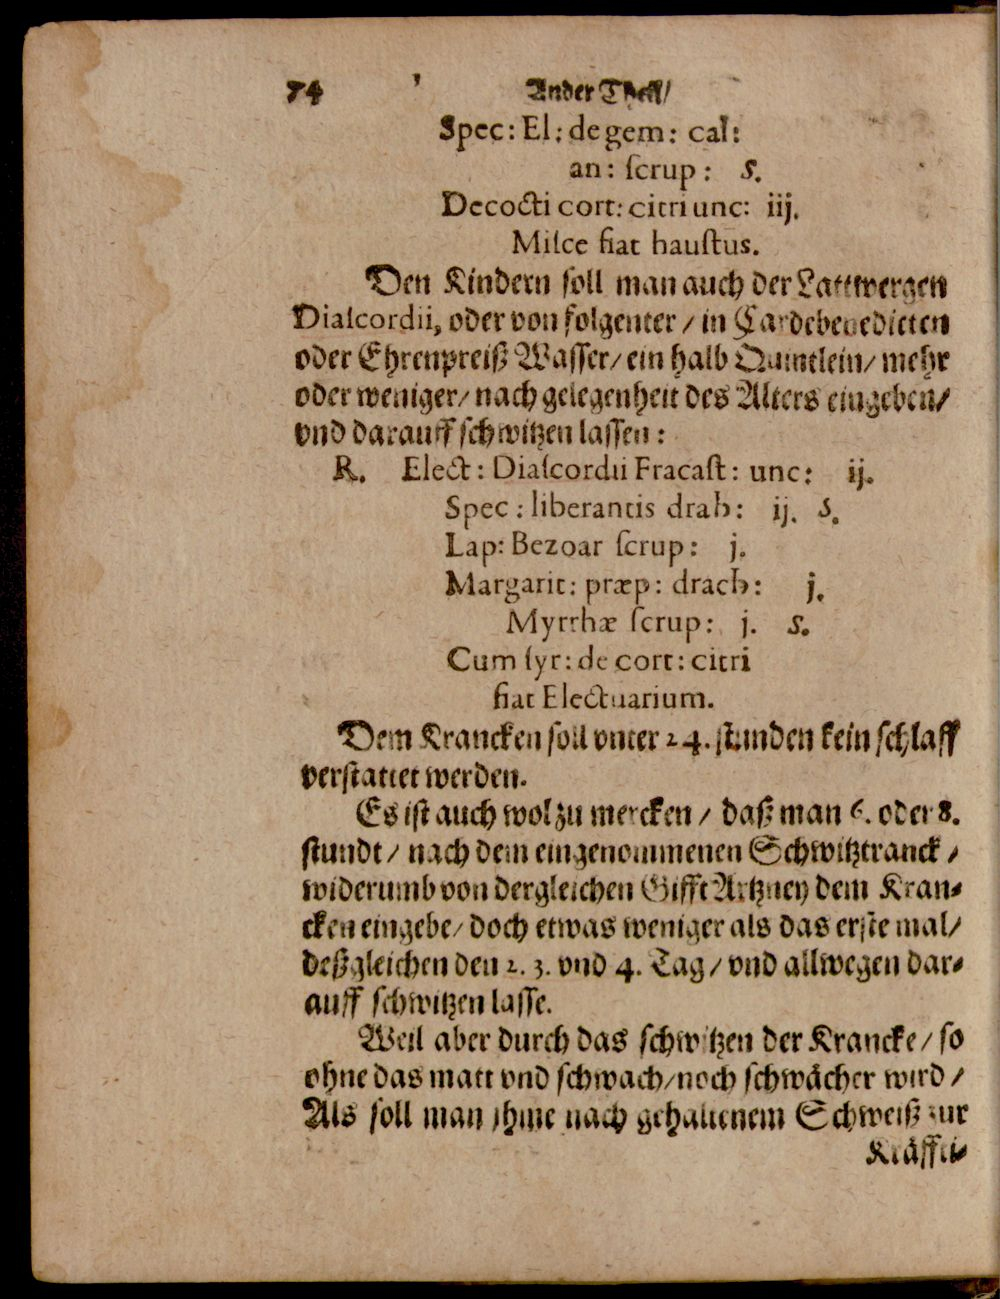 74 Ander Theil/
Spec: El: de gem: cal:
an: ſcrup: s.
Decocti cort: citri unc: iij.
Miſce fiat hauſtus.
Den Kindern ſoll man auch der Lattwergen
Diaſcordii, oder von folgenter / in Cardebenedicten
oder Ehrenpreiß Waſſer / ein halb Quintlein / mehr
oder weniger / nach gelegenheit des Alters eingeben /
vnd darauff ſchwitzen laſſen:
R. Elect: Diaſcordii Fracaſt: unc: ij.
Spec: liberantis drah: ij. s.
Lap: Bezoar ſcrup: j.
Margarit: præp: drach: j.
Myrrhæ ſcrup: j. s.
Cum ſyr: de cort: citri
fiat Electuarium.
Dem Krancken ſoll vnter 24. ſtunden kein ſchlaff
verſtattet werden.
Es iſt auch wol zu mercken / daß man 6. oder 8.
ſtundt / nach dem eingenommenen Schwitztranck /
widerumb von dergleichen Gifft Artzney dem Kran⸗
cken eingebe / doch etwas weniger als das erſte mal /
deßgleichen den 2. 3. vnd 4. Tag / vnd allwegen dar⸗
auff ſchwitzen laſſe.
Weil aber durch das ſchwitzen der Krancke / ſo
ohne das matt vnd ſchwach / noch ſchwächer wird /
Als ſoll man ihme nach gehaltenem Schweiß zur
Kräffti⸗